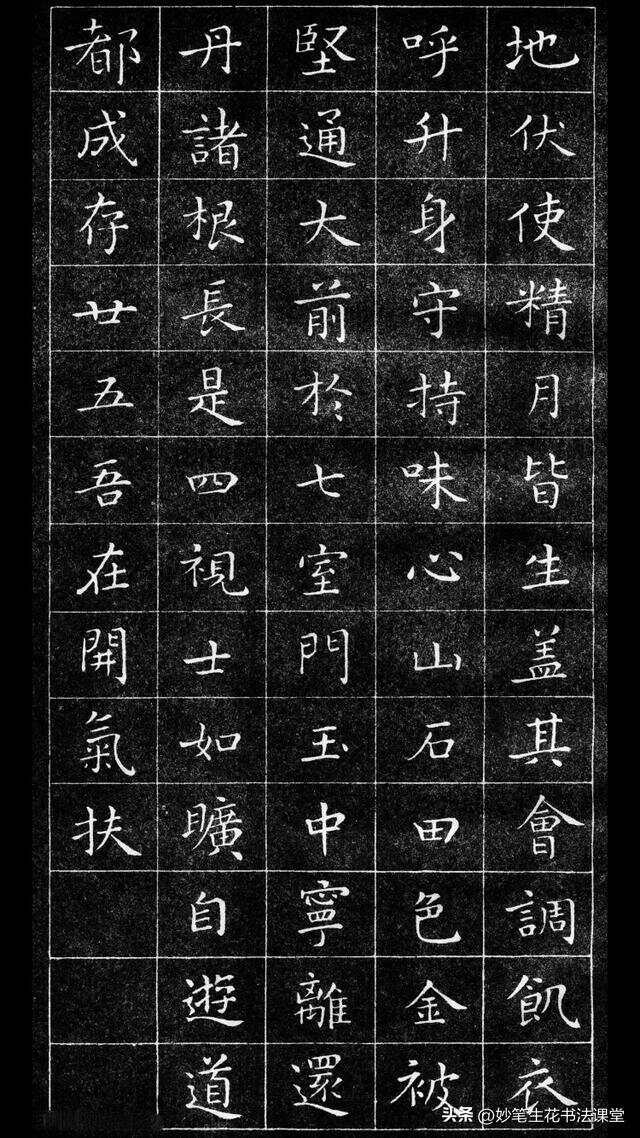 地伏使精月皆生盖其會調飢衣
呼升身守持味心山石田色金被
堅通大前於七室門玉中寧離還
丹諸根長是四視士如曠自遊道
都成存廿五吾在開氣扶
头条 @妙笔生花书法课堂